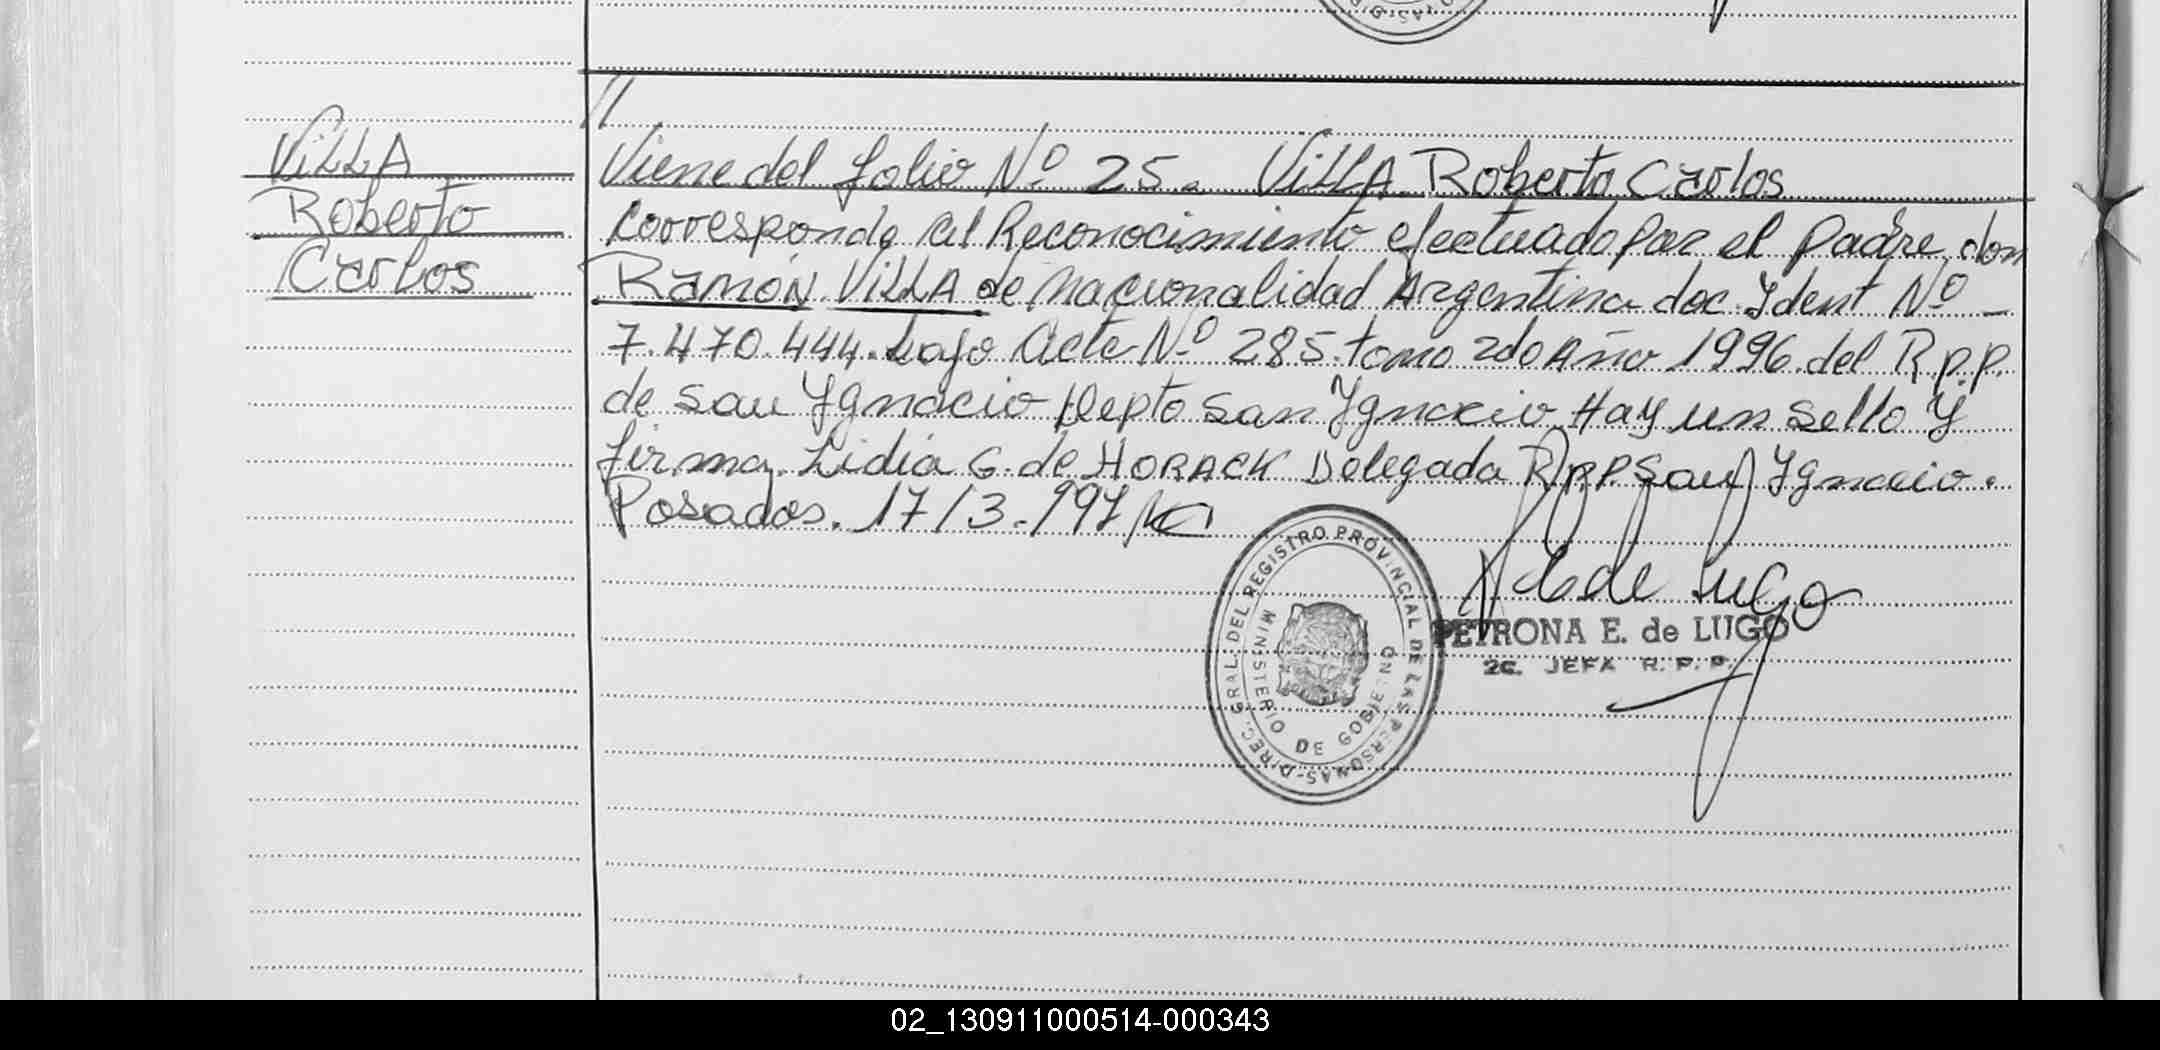 VILLA
Roberto
Carlos
//
Viene del folio Nº 25. VILLA Roberto Carlos
corresponde al Reconocimiento efectuado por el padre don
RAMÓN VILLA de nacionalidad Argentina doc. Ident Nº
7.470.444. bajo Acta Nº 285 tomo 2do Año 1996 del R.p.p.
de San Ygnacio Depto San Ygnacio. Hay un sello y
firma. Lidia G. de HORACK Delegada R.p.p. San Ygnacio.
Posadas. 17/3.1997
de Lugo
PETRONA E. de LUGO
2C. JEFA R. P. P.
DIREC. GRAL. DEL REGISTRO PROVINCIAL DE LAS PERSONAS
MINISTERIO DE GOBIERNO
02_130911000514-000343